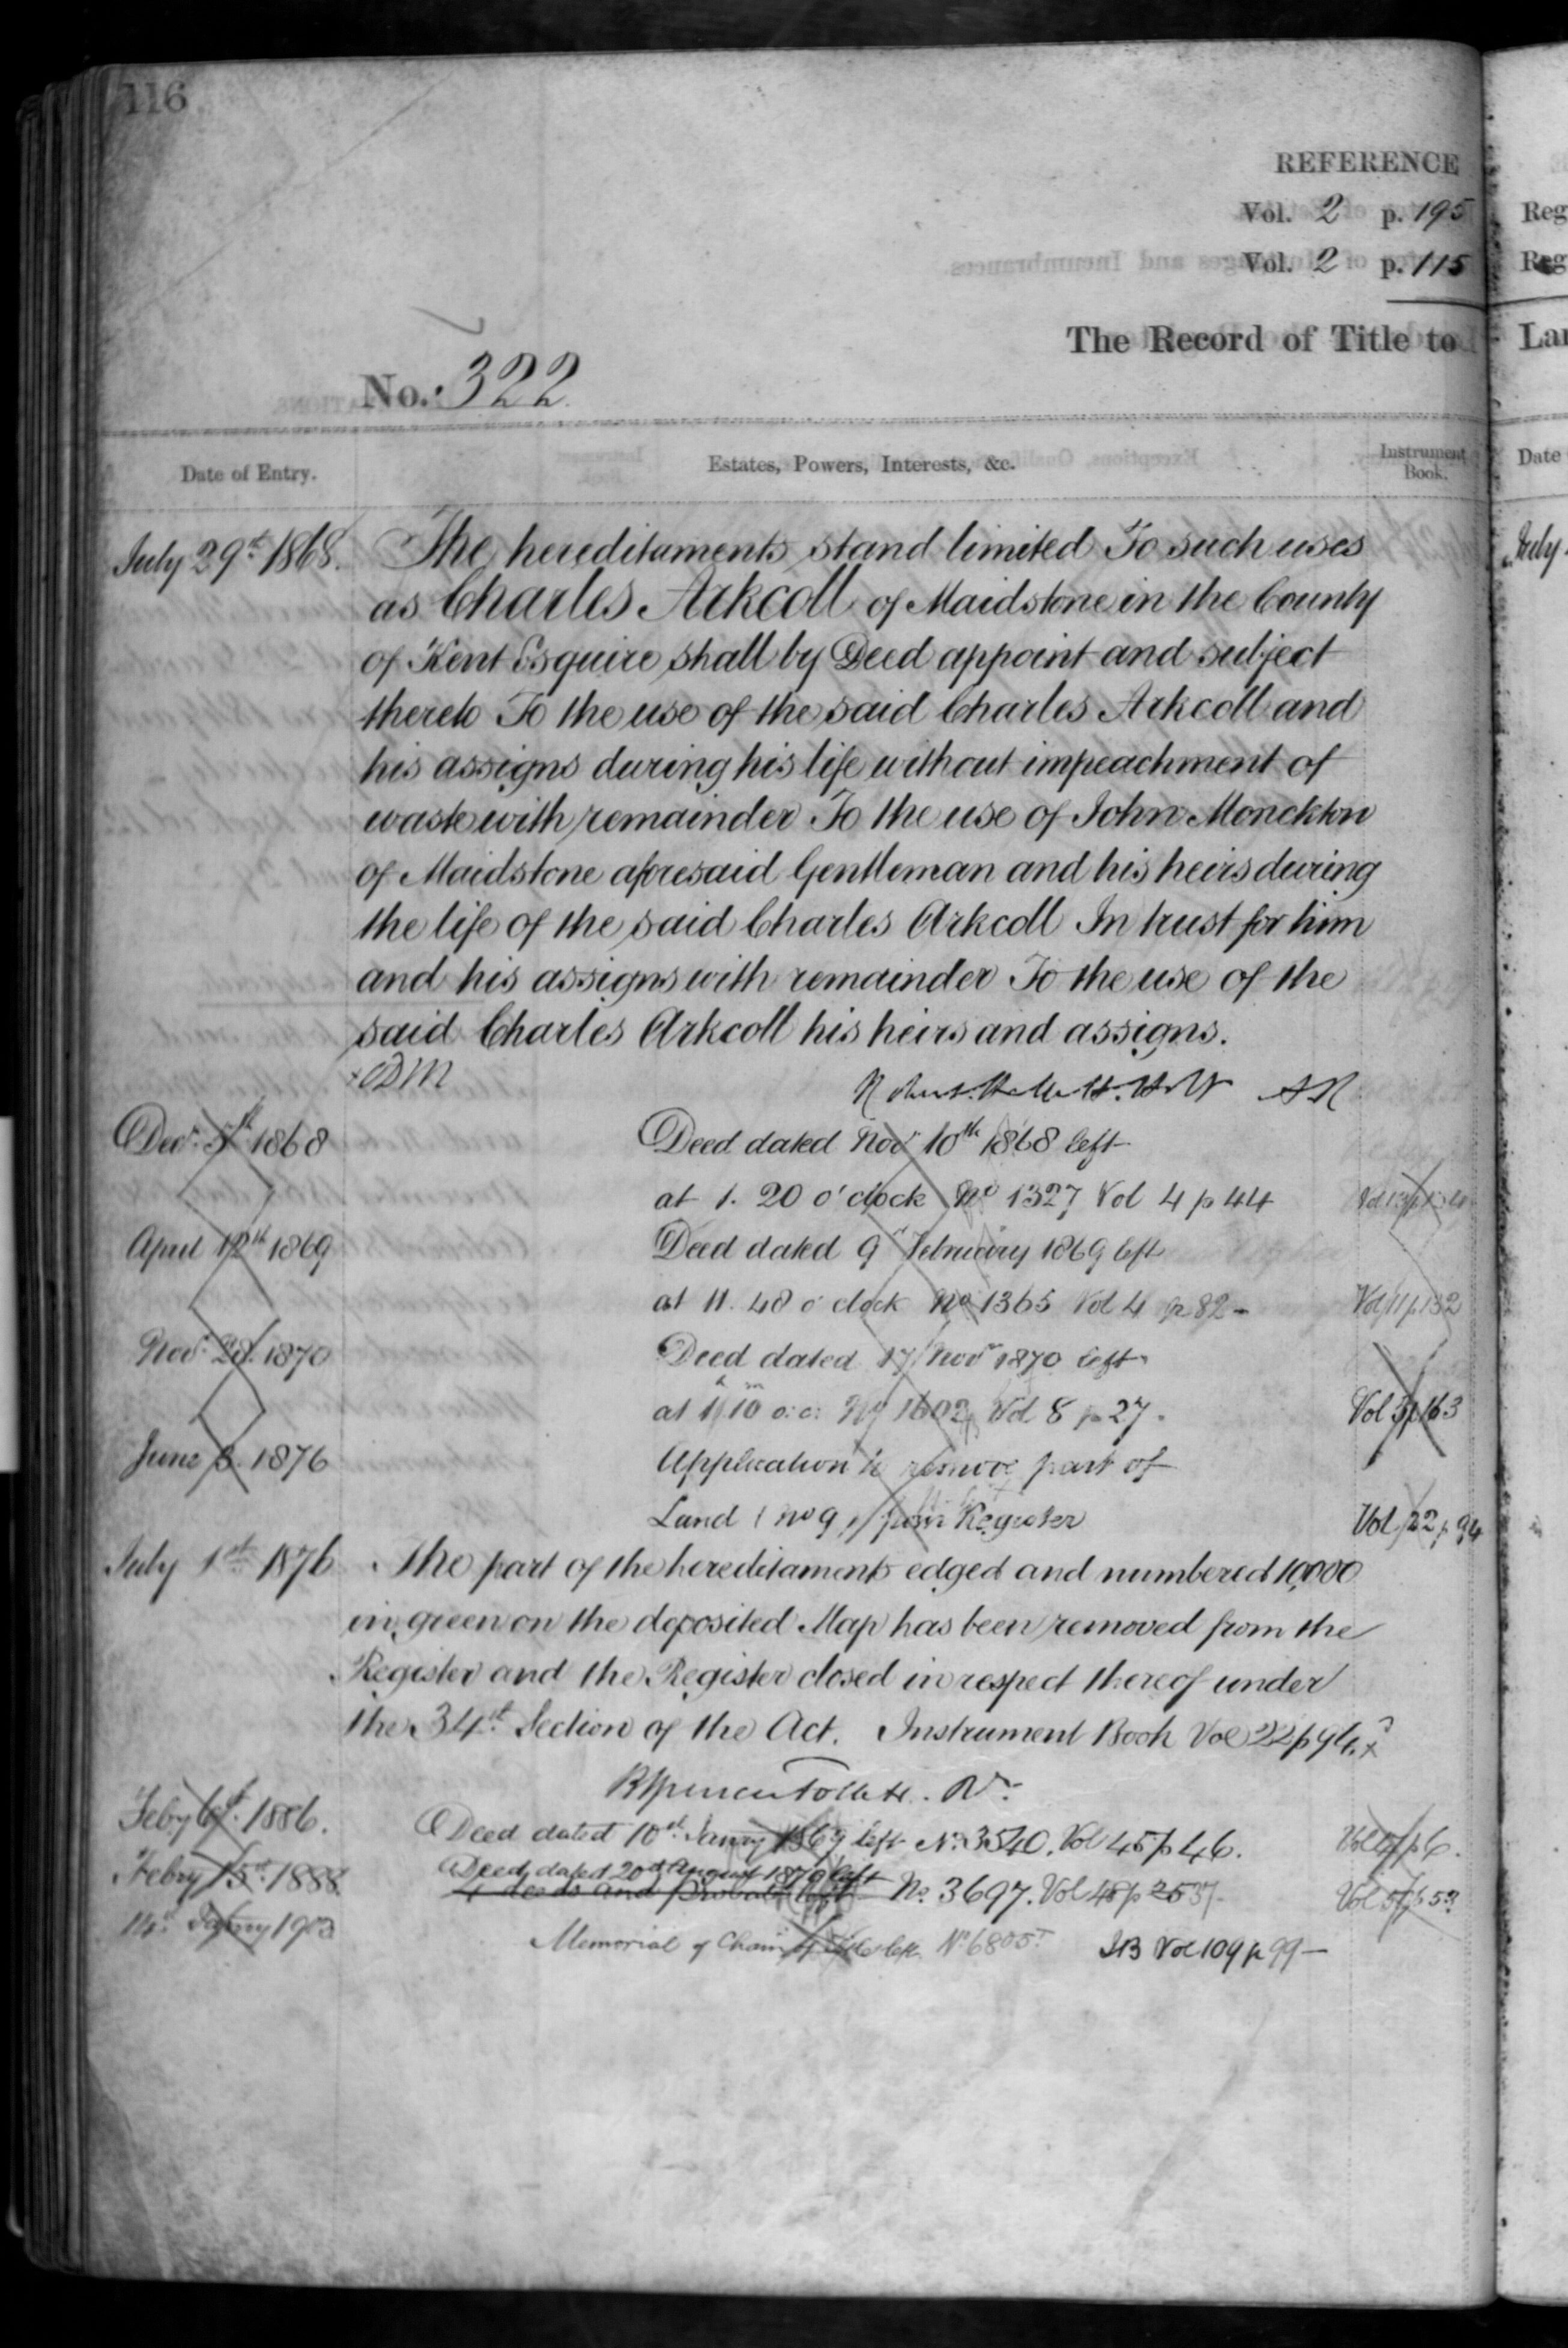 116
REFERENCE
Vol. 2 p. 195
Vol. 2 p. 115
The Record of Title to
No. 322
Date of Entry.
Estates, Powers, Interests, &c.
Instrument
Book.
July 29th 1868. The hereditaments stand limited To such uses
as Charles Arkcoll of Maidstone in the County
of Kent Esquire shall by Deed appoint and subject
thereto To the use of the said Charles Arkcoll and
his assigns during his life without impeachment of
waste with remainder To the use of John Monckton
of Maidstone aforesaid Gentleman and his heirs during
the life of the said Charles Arkcoll In trust for him
and his assigns with remainder To the use of the
said Charles Arkcoll his heirs and assigns.
Robert Hallett Holt AR
Decr. 5th 1868 Deed dated Novr 10th 1868 left
at 1. 20 o'clock No 1327 Vol 4 p 44
April 12th 1869 Deed dated 9 February 1869 left
at 11. 48 o'clock No 1365 Vol 4 p 82 - Vol 11 p 132
Novr. 28. 1870 Deed dated 17 Novr 1870 left
at 1h 10m o:c: No 1602 Vol 8 p 27. Vol 3 p 163
June 3. 1876 Application to remove part of
Land (No 9) from Register Vol 22 p 94
July 1st 1876 The part of the hereditaments edged and numbered 10,000
in green on the deposited Map has been removed from the
Register and the Register closed in respect thereof under
the 34th Section of the Act. Instrument Book Vol 22 p 94.
Feby 6th 1886. Deed dated 10th Janry 1869 left No. 3540. Vol 45 p 46. p 6.
Febry 15th 1888 Deed dated 20th August 1870 left
4 deeds and Probate left No. 3697. Vol 48 p
14th Janry 1903 Memorial of Chain of title left No 6805 IB Vol 109 p 99 -
Reg
Reg
Lan
Date
July